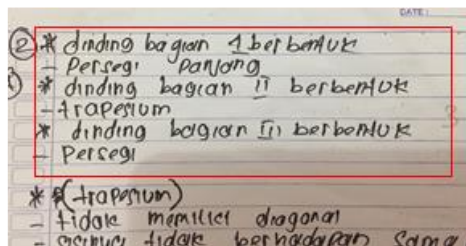 DATE:
② * dinding bagian I berbentuk
- Persegi Panjang
* dinding bagian II berbentuk
- trapesium
* dinding bagian III berbentuk
- Persegi
* (trapesium)
- tidak memiliki diagonal
tidak berhadapan sama